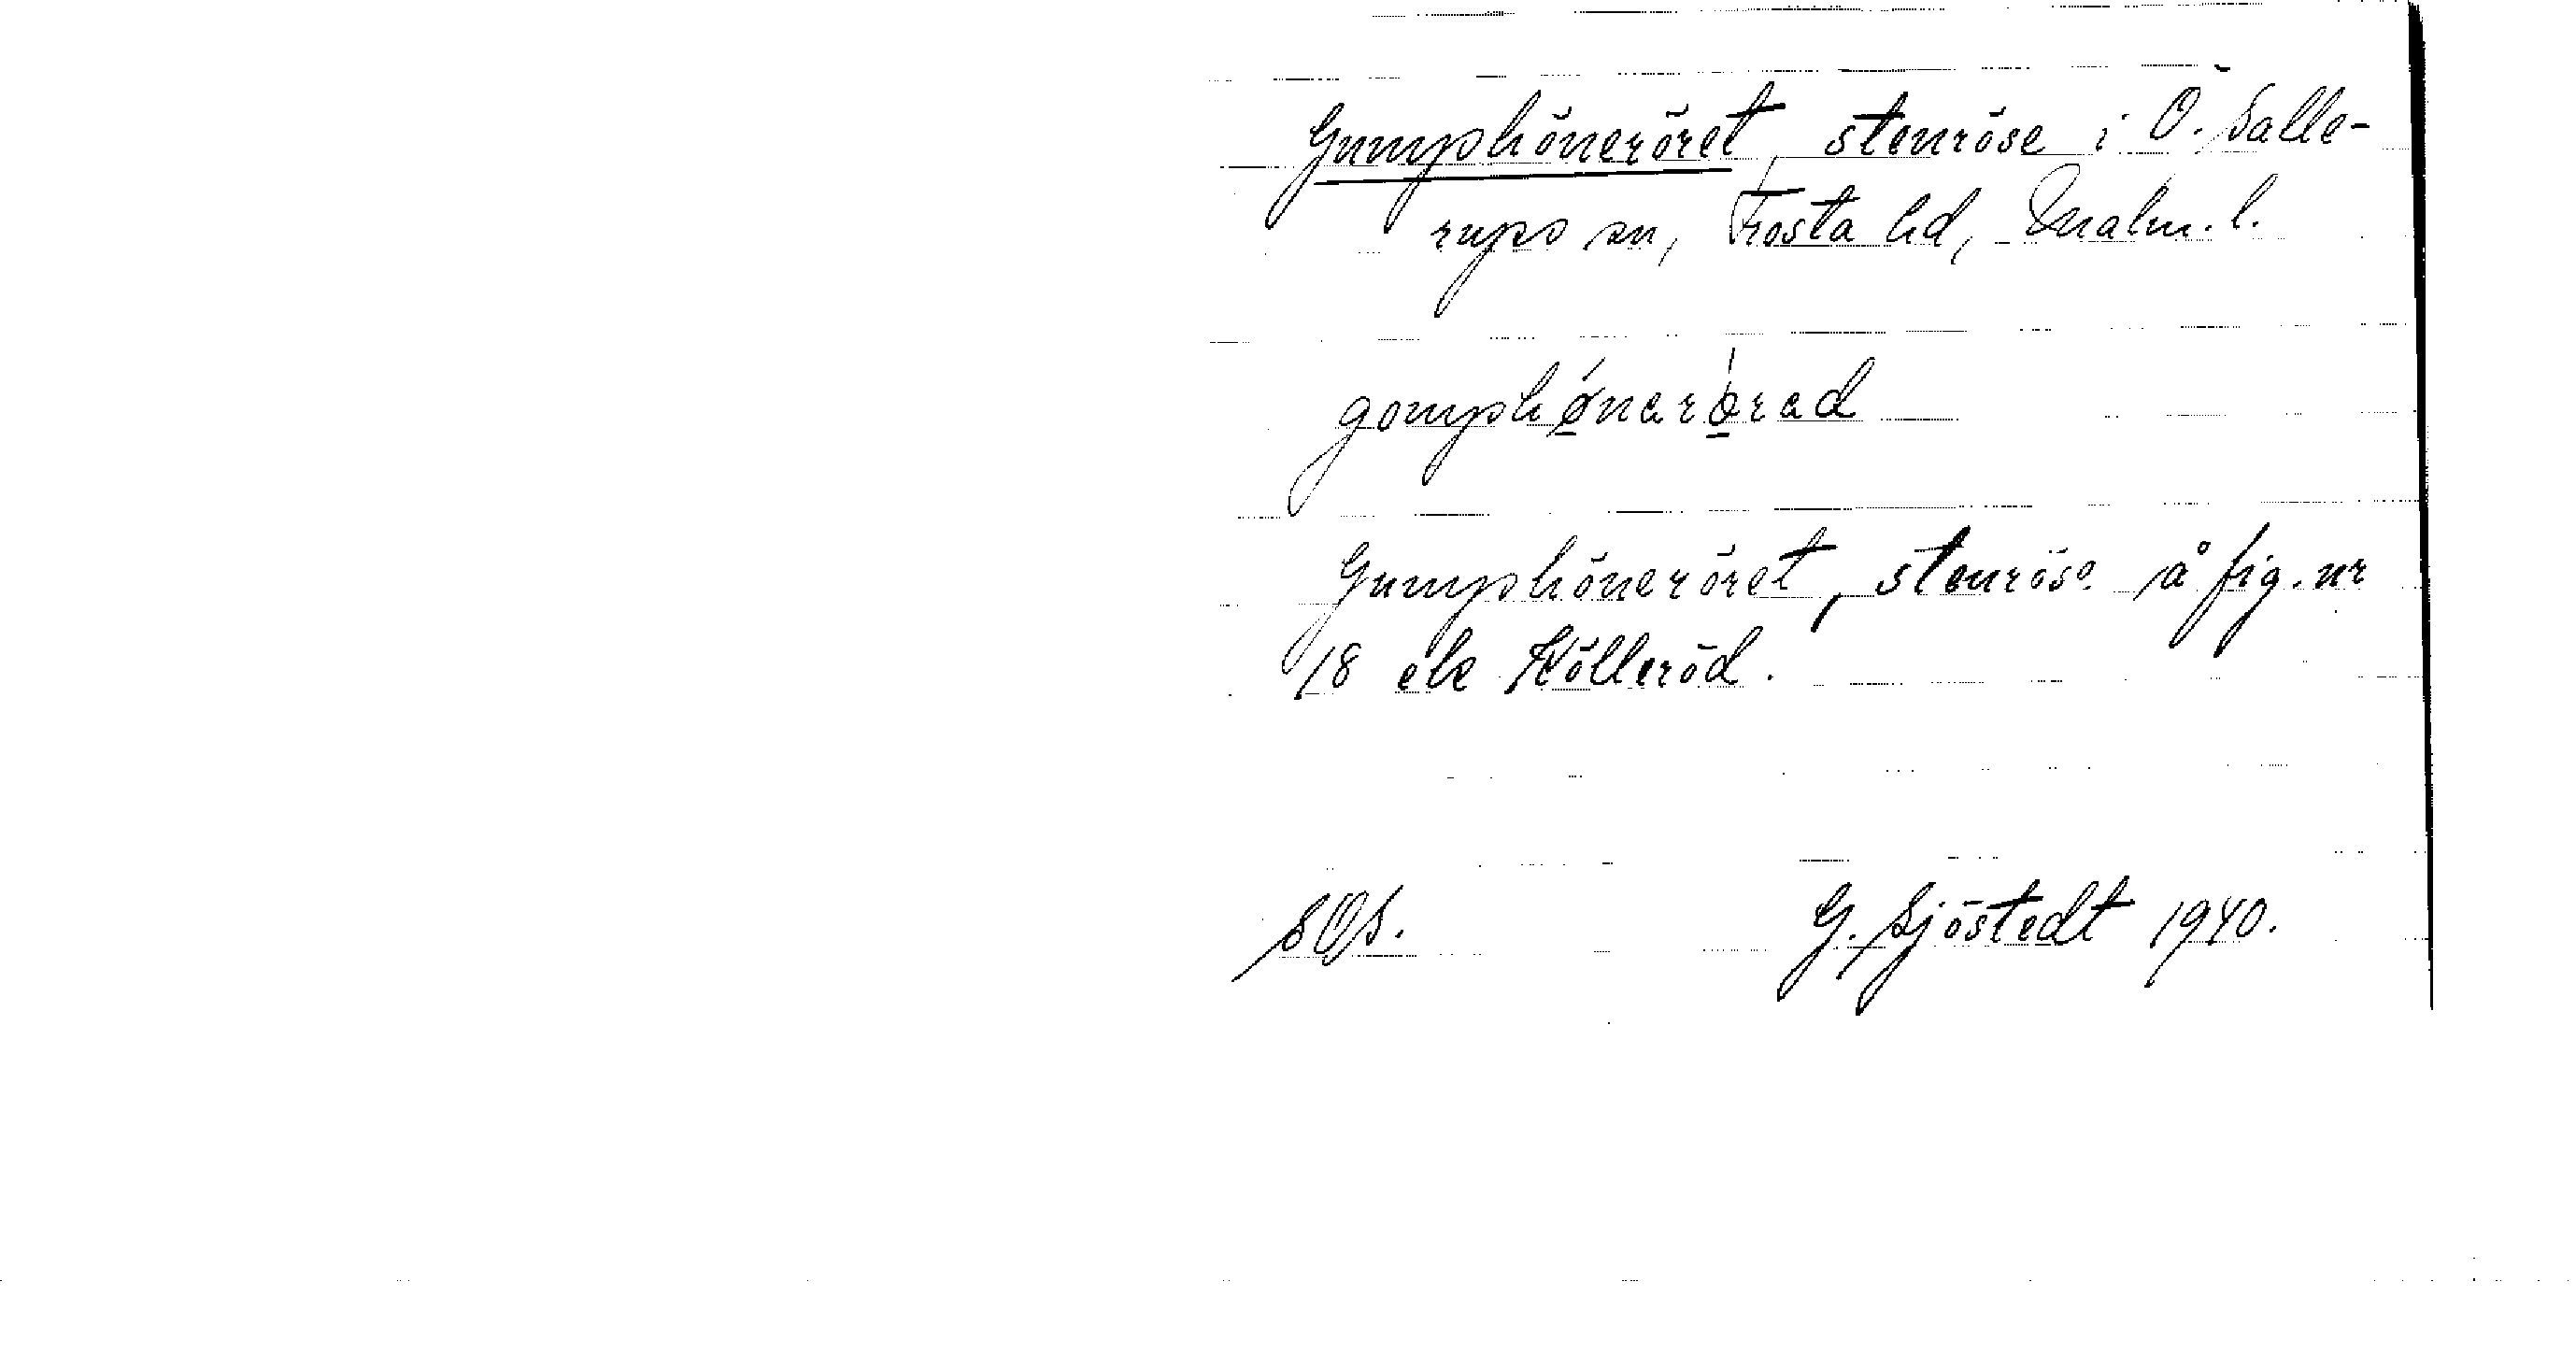 Gumphöneröret, stenröse i Ö. Salle-
rups sn, Frosta hd, Malm. l.
gomphǿnarørad
Gumphöneröret, stenröse å fig. nr
18 ell Kölleröd.
SOS. G. Sjöstedt 1940.